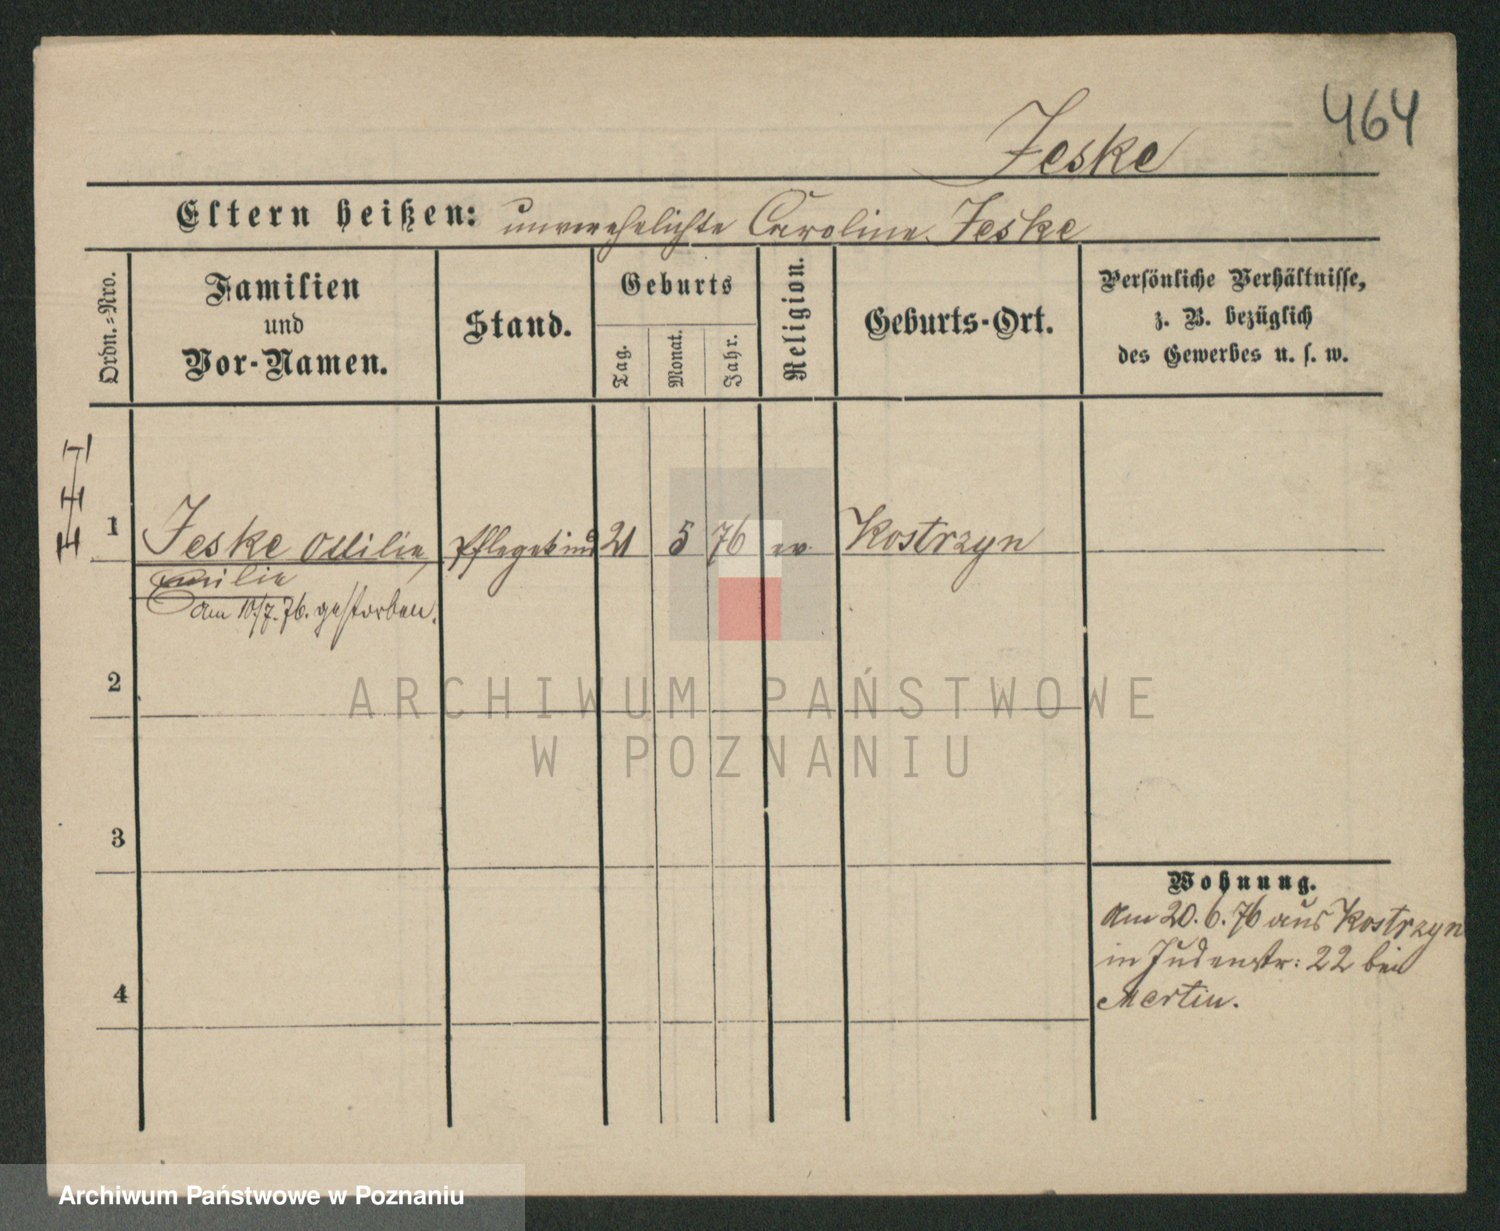 464
Jeske
Eltern heißen: unverehelichte Caroline Jeske
Ordn.=Nro.
Familien und Vor-Namen.
Stand.
Geburts
Tag.
Monat.
Jahr.
Religion.
Geburts-Ort.
Persönliche Verhältnisse,
z. B. bezüglich
des Gewerbes u. s. w.
1 Jeske Ottilie, Pflegekind 21 5 76 ev. Kostrzyn
Emilie
am 10/7.76. gestorben.
2
ARCHIWUM PAŃSTWOWE
W POZNANIU
3
Wohnung.
Am 20.6.76 aus Kostrzyn
in Judenstr: 22 bei
Mertin.
4
Archiwum Państwowe w Poznaniu